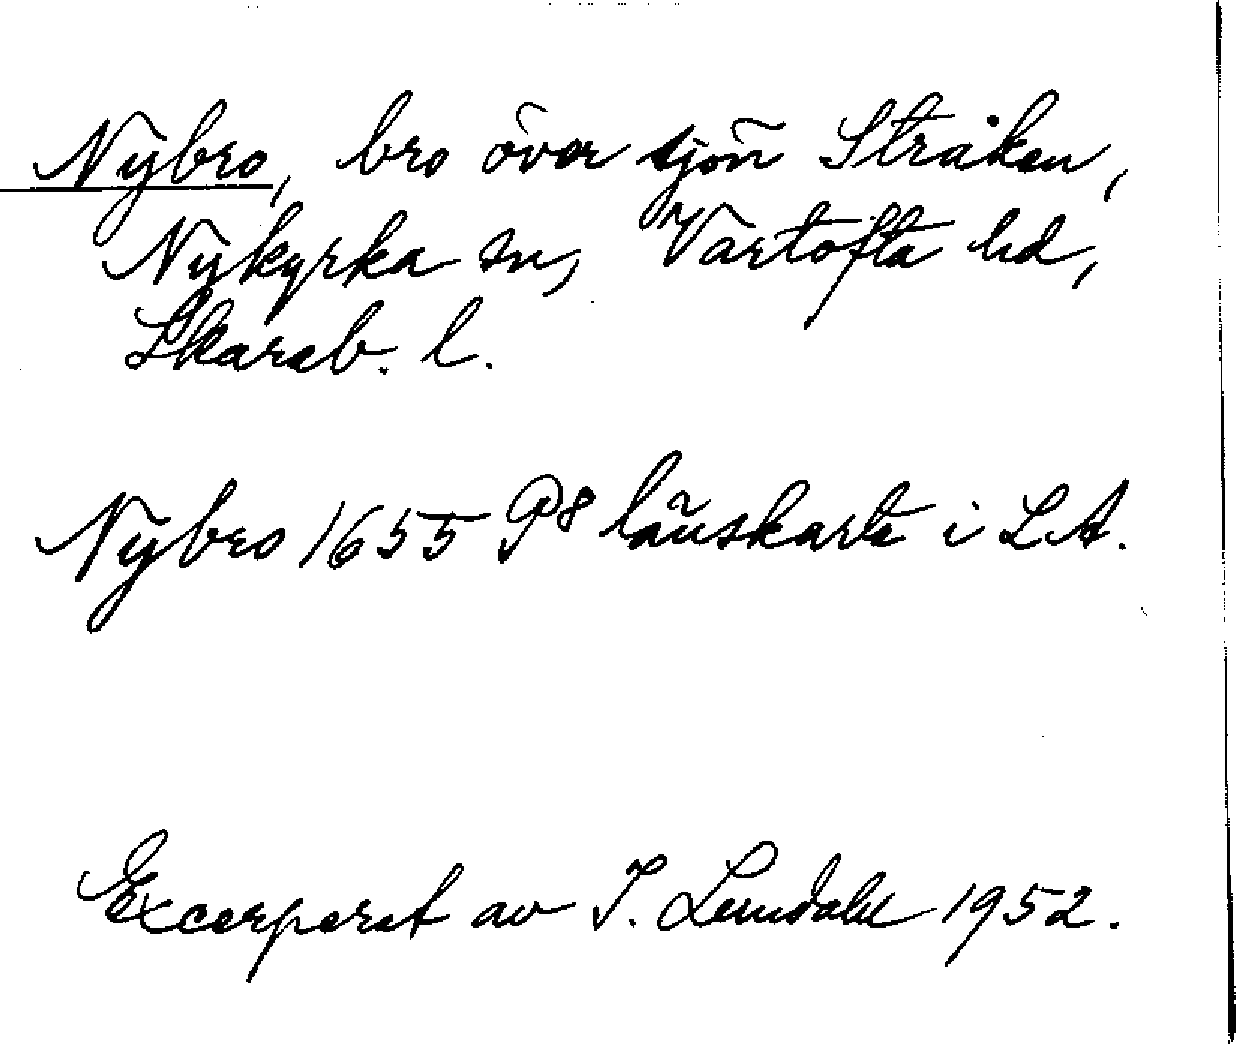 Nybro, bro över sjön Stråken,
Nykyrka sn, Vartofta hd,
Skarab. l.
Nybro 1655 P8 länskarta i LA.
Excerperat av I. Lundahl 1952.